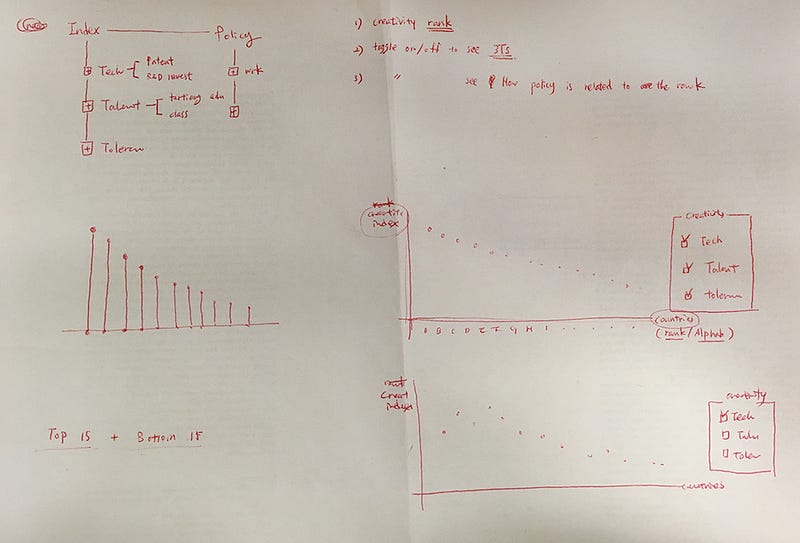 Index Policy
Tech Patent
R&D invest
work
Talent tertiary edu
class
Toleran
Top 15 + Bottom 15
1) creativity rank
2) toggle on/off to see 3Ts.
3) " see How policy is related to the rank
rank
creative
index
Creativity
Tech
Talent
toleran
A B C D E F G H I
countries
(rank/Alphab)
rank
Creat
index
creativity
Tech
Talen
Toler
countries